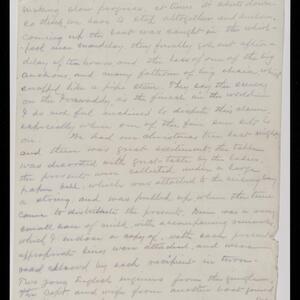 making slow progress, at times it shuts down
so thick we have to stop altogether and anchor.
Coming up the boat was caught in the whirl-
pool near Mandalay, they finally got out after a
delay of two hours, and the loss of one of the big
anchors, and many fathoms of big chain, which
snapped like a pipe stem. They say the scenery
on the Irrawaddy, is the finest in the world.
I do not feel inclined to dispute this claim
especially when one of the fine sun sets is
on.
We had our Christmas tree last night
and there was great excitement, the table
was decorated with great taste by the ladies,
the presents were collected under a large
paper bell, which was attached to the ceiling by
a string, and was pulled up when the time
came to distribute the presents. Mine was a very
small can of milk, with accompanying
which I enclose a copy of, with each present
appropriate lines were attached, and were
read aloud by each recipient in turn.
Two young English engineers from the
Dept. and wife from another boat joined